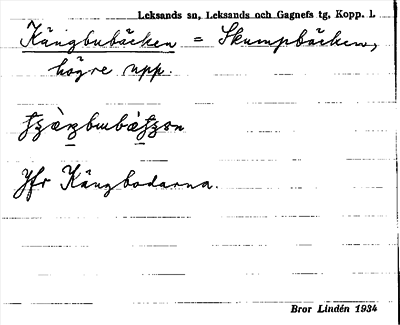 Leksands sn, Leksands och Gagnefs tg, Kopp. l.
Kängbubäcken = Skumpbäcken,
högre upp.
Jfr Kängbodarna.
Bror Lindén 1934